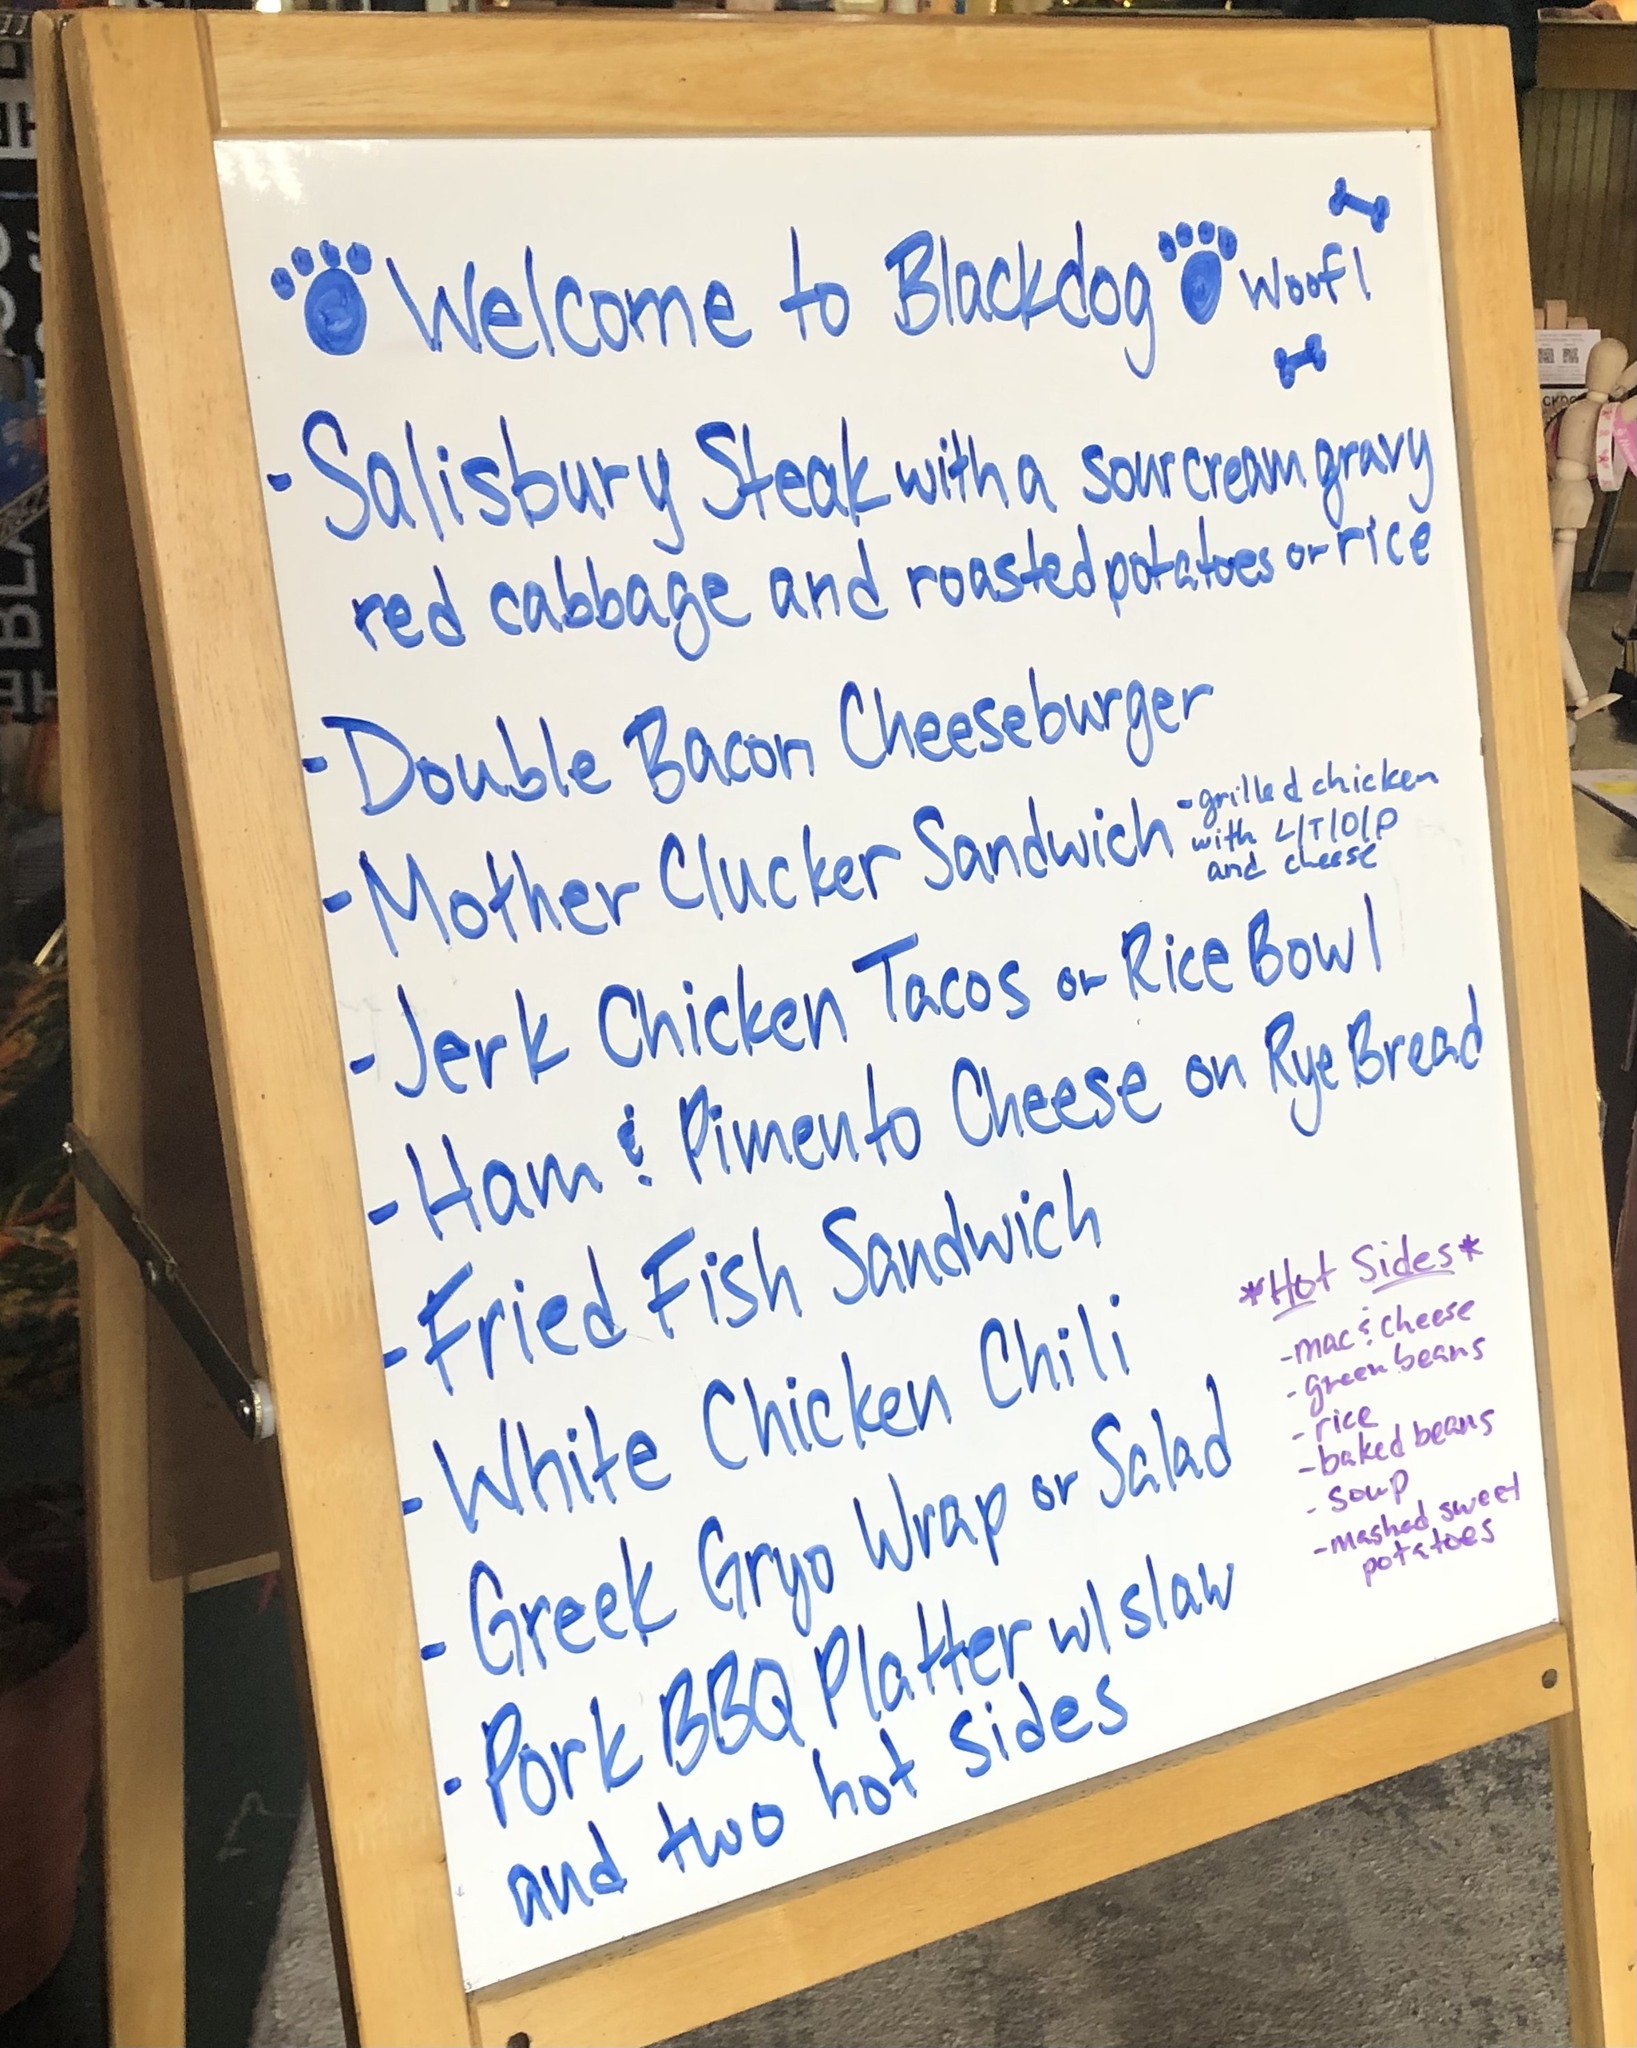 Welcome to Blackdog Woof!
- Salisbury Steak with a sour cream gravy
red cabbage and roasted potatoes or rice
- Double Bacon Cheeseburger
- Mother Clucker Sandwich
- grilled chicken
with L/T/O/P
and cheese
- Jerk Chicken Tacos or Rice Bowl
- Ham & Pimento Cheese on Rye Bread
- Fried Fish Sandwich
- White Chicken Chili
- Greek Gryo Wrap or Salad
- Pork BBQ Platter w/ slaw
and two hot sides
*Hot Sides*
- mac & cheese
- green beans
- rice
- baked beans
- soup
- mashed sweet
potatoes